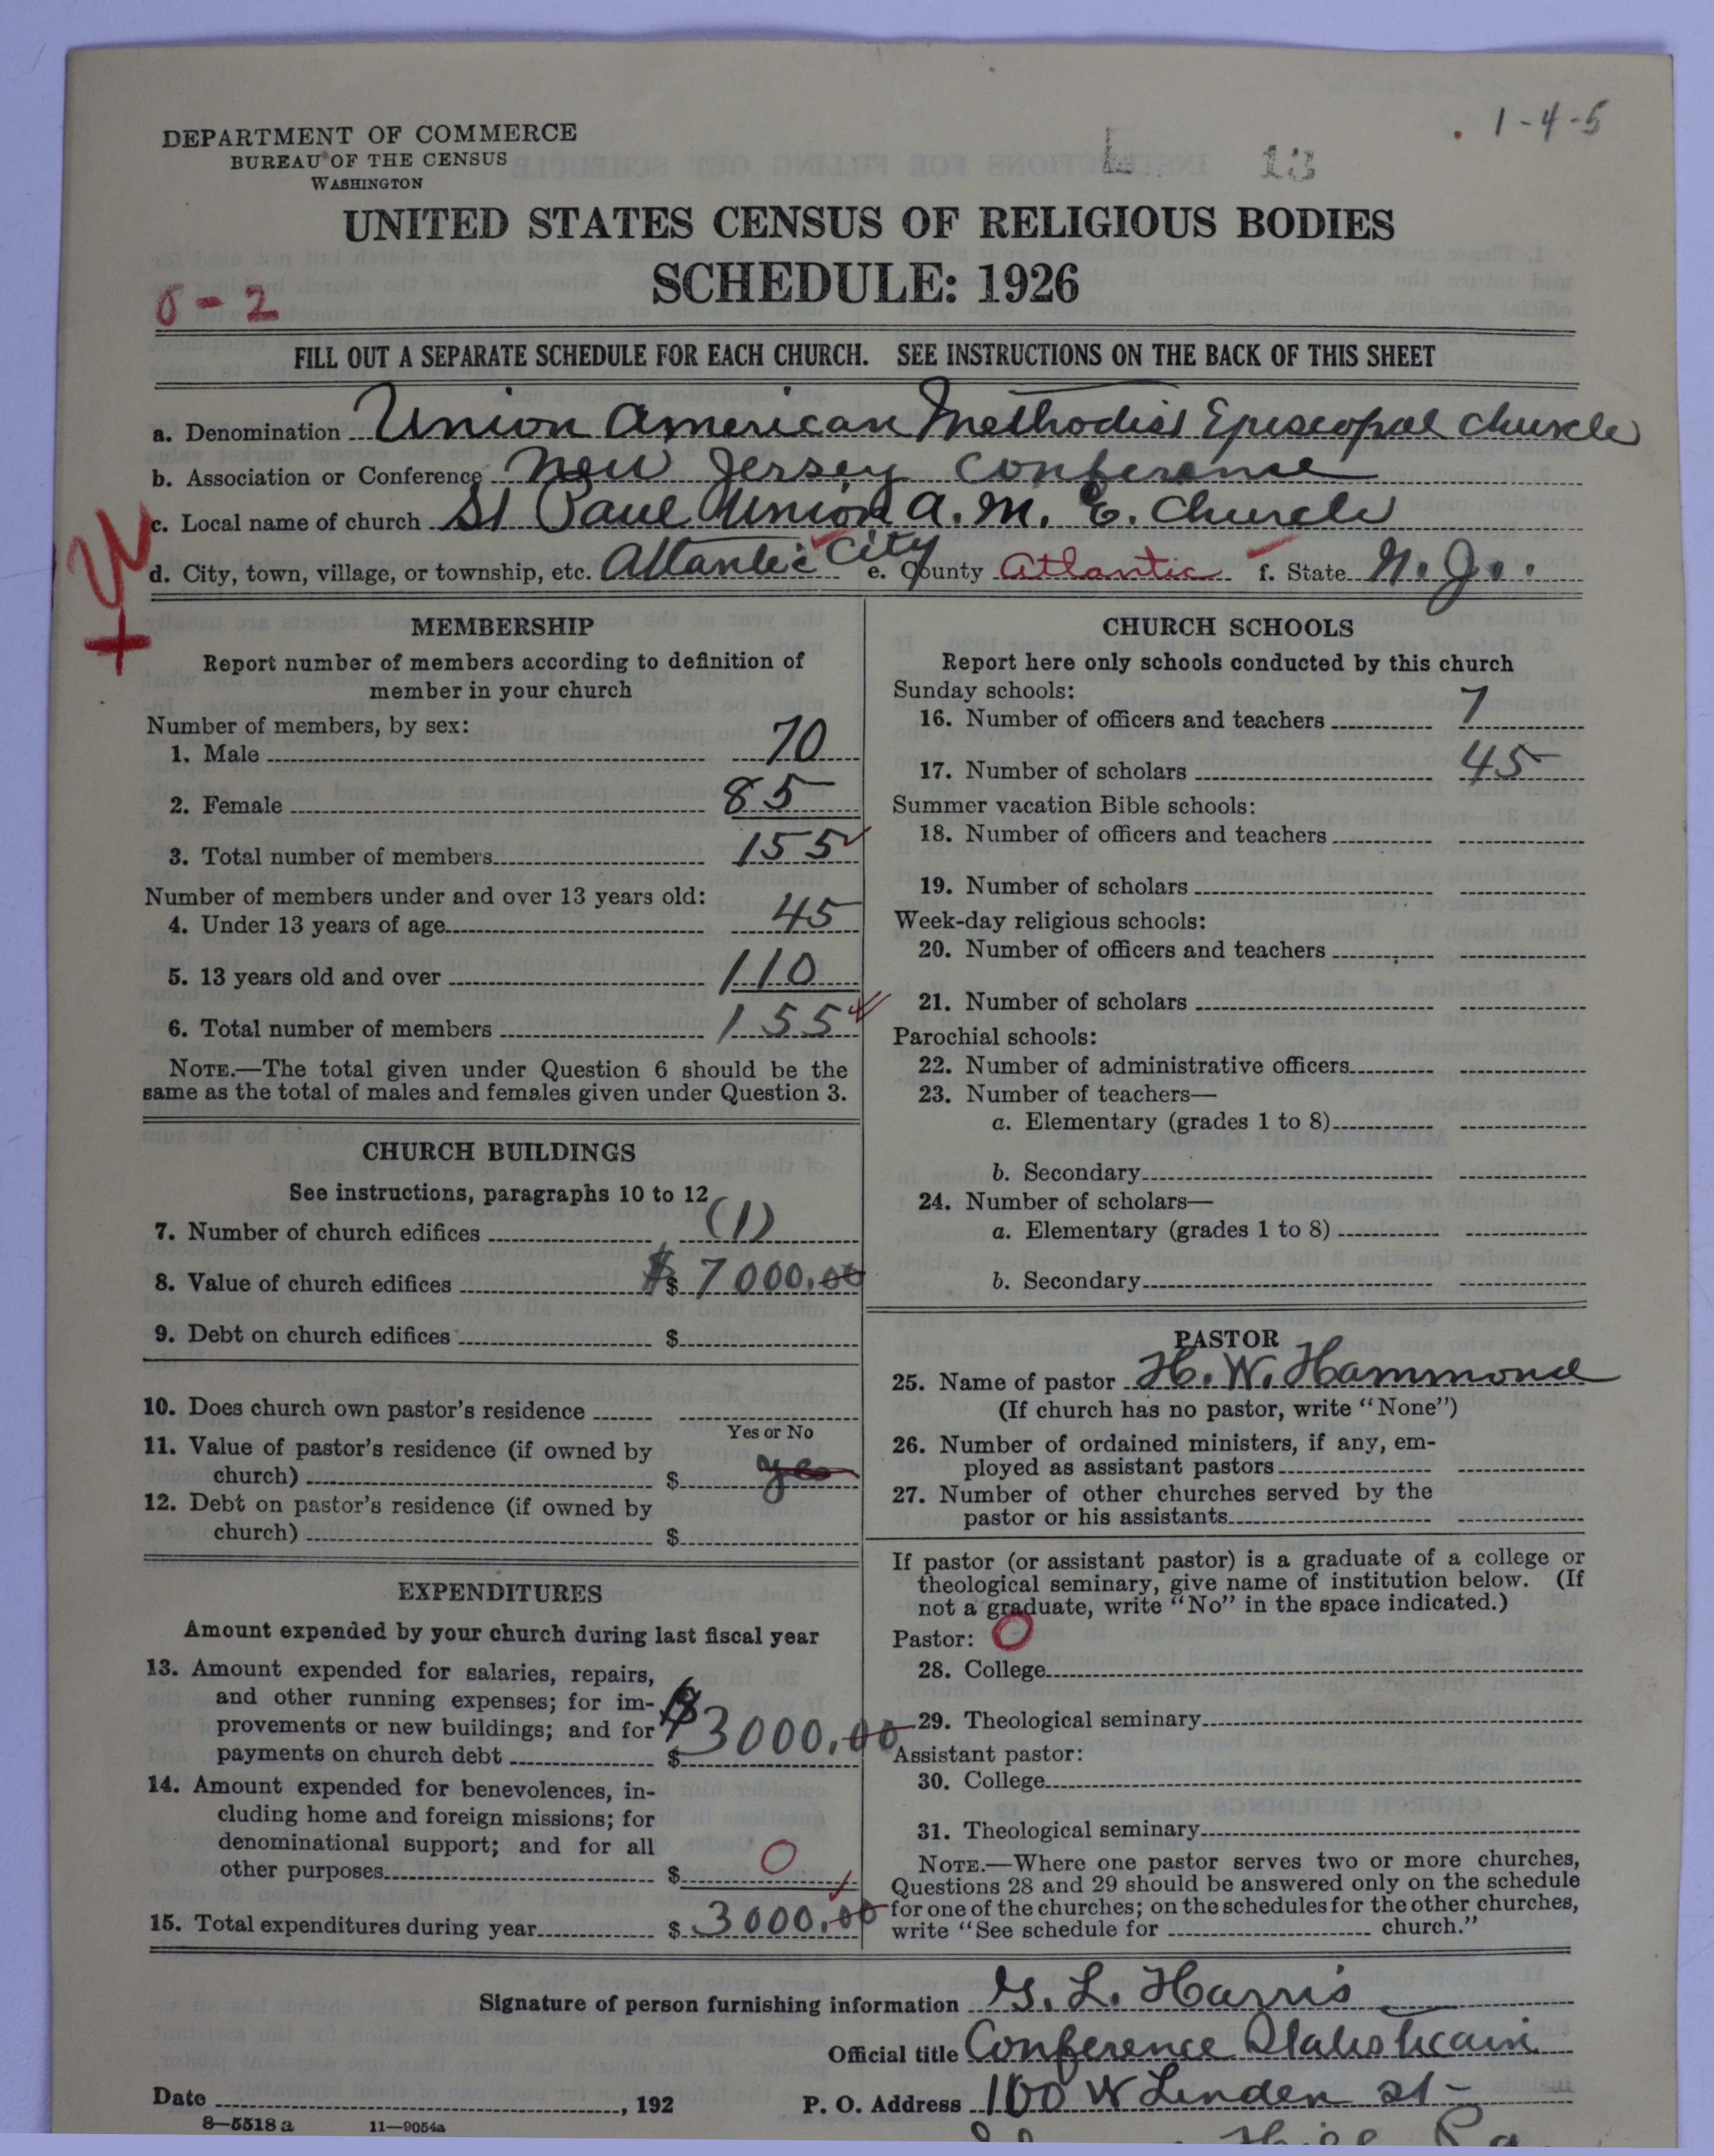 1-4-5
13
DEPARTMENT OF COMMERCE
BUREAU OF THE CENSUS
WASHINGTON
UNITED STATES CENSUS OF RELIGIOUS BODIES
SCHEDULE: 1926
0-2
FILL OUT A SEPARATE SCHEDULE FOR EACH CHURCH. SEE INSTRUCTIONS ON THE BACK OF THIS SHEET
a. Denomination Union American Methodist Episcopal Church
b. Association or Conference New Jersey Conference
c. Local name of church St Paul Union A. M. E. Church
d. City, town, village, or township, etc. Atlantic City e. County Atlantic f. State N. J.
MEMBERSHIP
Report number of members according to definition of
member in your church
Number of members, by sex:
1. Male 70
2. Female 85
3. Total number of members 155
Number of members under and over 13 years old:
4. Under 13 years of age 45
5. 13 years old and over 110
6. Total number of members 155
NOTE.—The total given under Question 6 should be the
same as the total of males and females given under Question 3.
CHURCH BUILDINGS
See instructions, paragraphs 10 to 12
7. Number of church edifices (1)
8. Value of church edifices $ $ 7000.00
9. Debt on church edifices $
10. Does church own pastor's residence
Yes or No
11. Value of pastor's residence (if owned by
church) $ yes
12. Debt on pastor's residence (if owned by
church) $
EXPENDITURES
Amount expended by your church during last fiscal year
13. Amount expended for salaries, repairs,
and other running expenses; for im-
provements or new buildings; and for
payments on church debt $ $ 3000.00
14. Amount expended for benevolences, in-
cluding home and foreign missions; for
denominational support; and for all
other purposes $ 0
15. Total expenditures during year $ 3000.00
CHURCH SCHOOLS
Report here only schools conducted by this church
Sunday schools:
16. Number of officers and teachers 7
17. Number of scholars 45
Summer vacation Bible schools:
18. Number of officers and teachers
19. Number of scholars
Week-day religious schools:
20. Number of officers and teachers
21. Number of scholars
Parochial schools:
22. Number of administrative officers
23. Number of teachers—
a. Elementary (grades 1 to 8)
b. Secondary
24. Number of scholars—
a. Elementary (grades 1 to 8)
b. Secondary
PASTOR
25. Name of pastor H. W. Hammond
(If church has no pastor, write "None")
26. Number of ordained ministers, if any, em-
ployed as assistant pastors
27. Number of other churches served by the
pastor or his assistants
If pastor (or assistant pastor) is a graduate of a college or
theological seminary, give name of institution below. (If
not a graduate, write "No" in the space indicated.)
Pastor: 0
28. College
29. Theological seminary
Assistant pastor:
30. College
31. Theological seminary
NOTE.—Where one pastor serves two or more churches,
Questions 28 and 29 should be answered only on the schedule
for one of the churches; on the schedules for the other churches,
write "See schedule for church."
Signature of person furnishing information G. L. Harris
Official title Conference Statisticain
Date , 192 P. O. Address 100 W Linden St-
8—5518 a 11—9054a